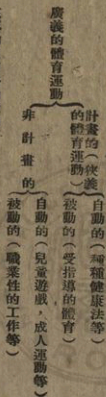 廣義的體育運動
計畫的(狹義的體育運動)
自動的(種種健康法等)
被動的(受指導的體育)
非計畫的
自動的(兒童遊戲,成人運動等)
被動的(職業性的工作等)